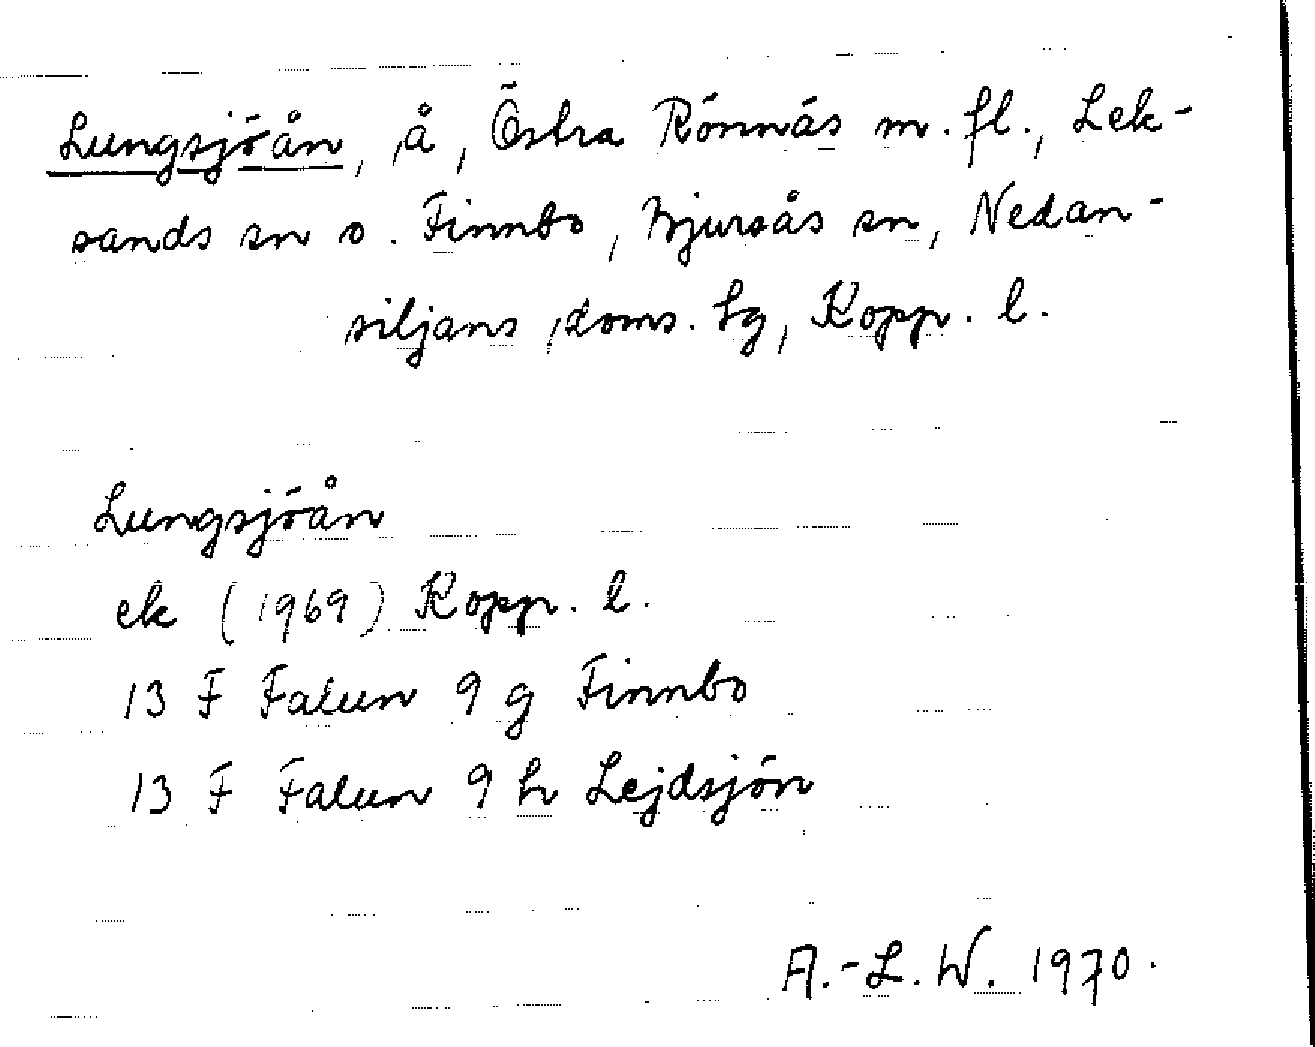 Lungsjöån, å, Östra Rönnäs m. fl., Lek-
sands sn o. Finnbo, Bjursås sn, Nedan-
siljans doms. tg, Kopp. l.
Lungsjöån
ek (1969) Kopp. l.
13 F Falun 9 g Finnbo
13 F Falun 9 h Lejdsjön
A.-L. W. 1970.